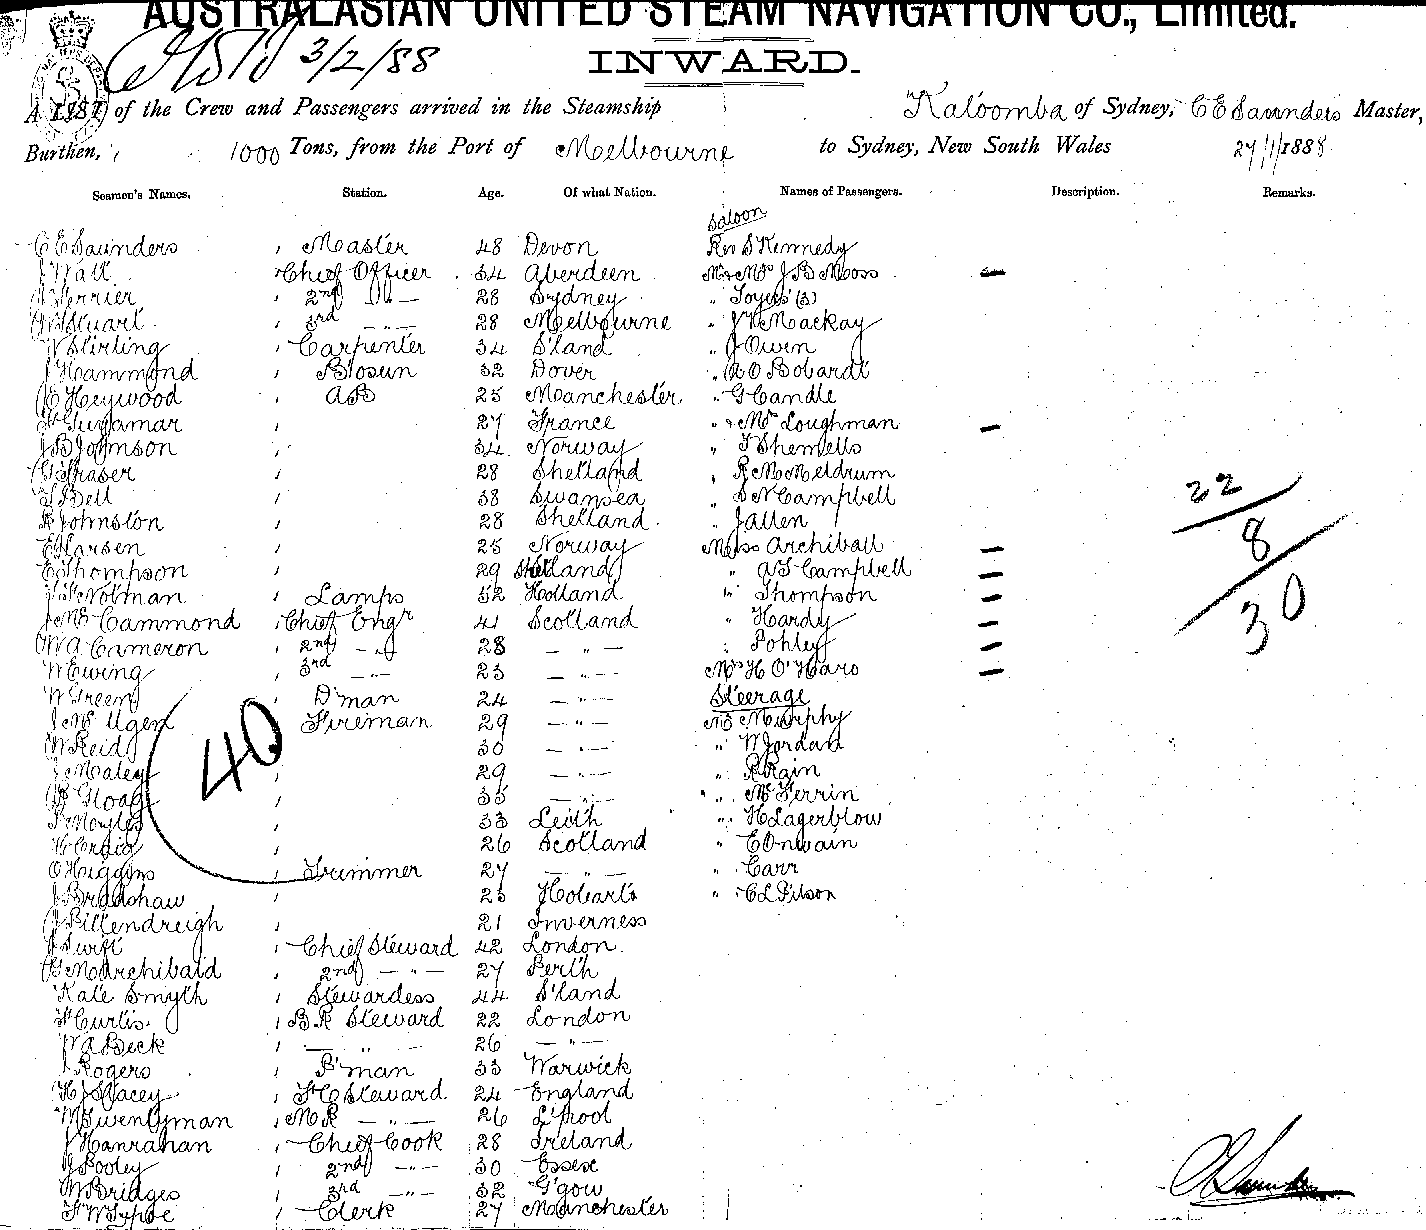 AUSTRALASIAN UNITED STEAM NAVIGATION CO., Limited.
3/2/88
INWARD.
A LIST of the Crew and Passengers arrived in the Steamship "Kaloomba of Sydney, C E Saunders Master,
Burthen, 1000 Tons, from the Port of Melbourne to Sydney, New South Wales 27/1/1888
Seamen's Names. Station. Age. Of what Nation. Names of Passengers. Description. Remarks.
Saloon
C E Saunders Master 48 Devon Rev S Kennedy
J Wall Chief Officer 34 Aberdeen Mr & Mrs J B Moss —
Ferrier 2nd 28 Sydney " (3)
Stuart 3rd — " — 28 Melbourne " J W Mackay
W Stirling Carpenter 34 S'land " J Owen
J Hammond Bosun 32 Dover " A O Bobardt
E Heywood AB 25 Manchester " G Candle
27 France " & Mrs Loughman —
J B Johnson 34 Norway " T Shemells
G Fraser 28 Shetland " R McMeldrum
T Bell 38 Swansea " S N Campbell
R Johnston 28 Shetland " J Allen
E Larsen 25 Norway Miss Archiball —
E Thompson 29 Shetland " A S Campbell —
Notman Lamps 52 Holland " Thompson —
J McCammond Chief Engr 41 Scotland " Hardy —
W A Cameron 2nd — " — 28 — " — " Pohley —
W Ewing 3rd — " — 23 — " — Mrs H O'Hara —
W Green D'man 24 — " — Steerage
J McUgen Fireman 29 — " — Mr Murphy
W Reid 30 — " — " W Jordan
J Maley 29 — " — " R Rain
Gloag 35 — " — " McFerrin
P Moyles 33 Leith " H Lagerblow
H Craig 26 Scotland "
O Higgins Trimmer 27 — " — " Carr
J Bradshaw 23 Hobart " C L Pilson
J Pittendreigh 21 Inverness
J Swift Chief Steward 42 London
G M Archibald 2nd — " — 27 Perth
Kate Smyth Stewardess 44 S'land
F Curtis B.R Steward 22 London
W A Beck — " — 26 — " —
J Rogers P'man 33 Warwick
H J Stacey F C Steward 24 England
M R — " — 26 L'pool
J Hanrahan Chief Cook 28 Ireland
J Pooley 2nd — " — 30 Essex
W Bridges 3rd — " — 32 G'gow
Clerk 27 Manchester
40
22
8
30